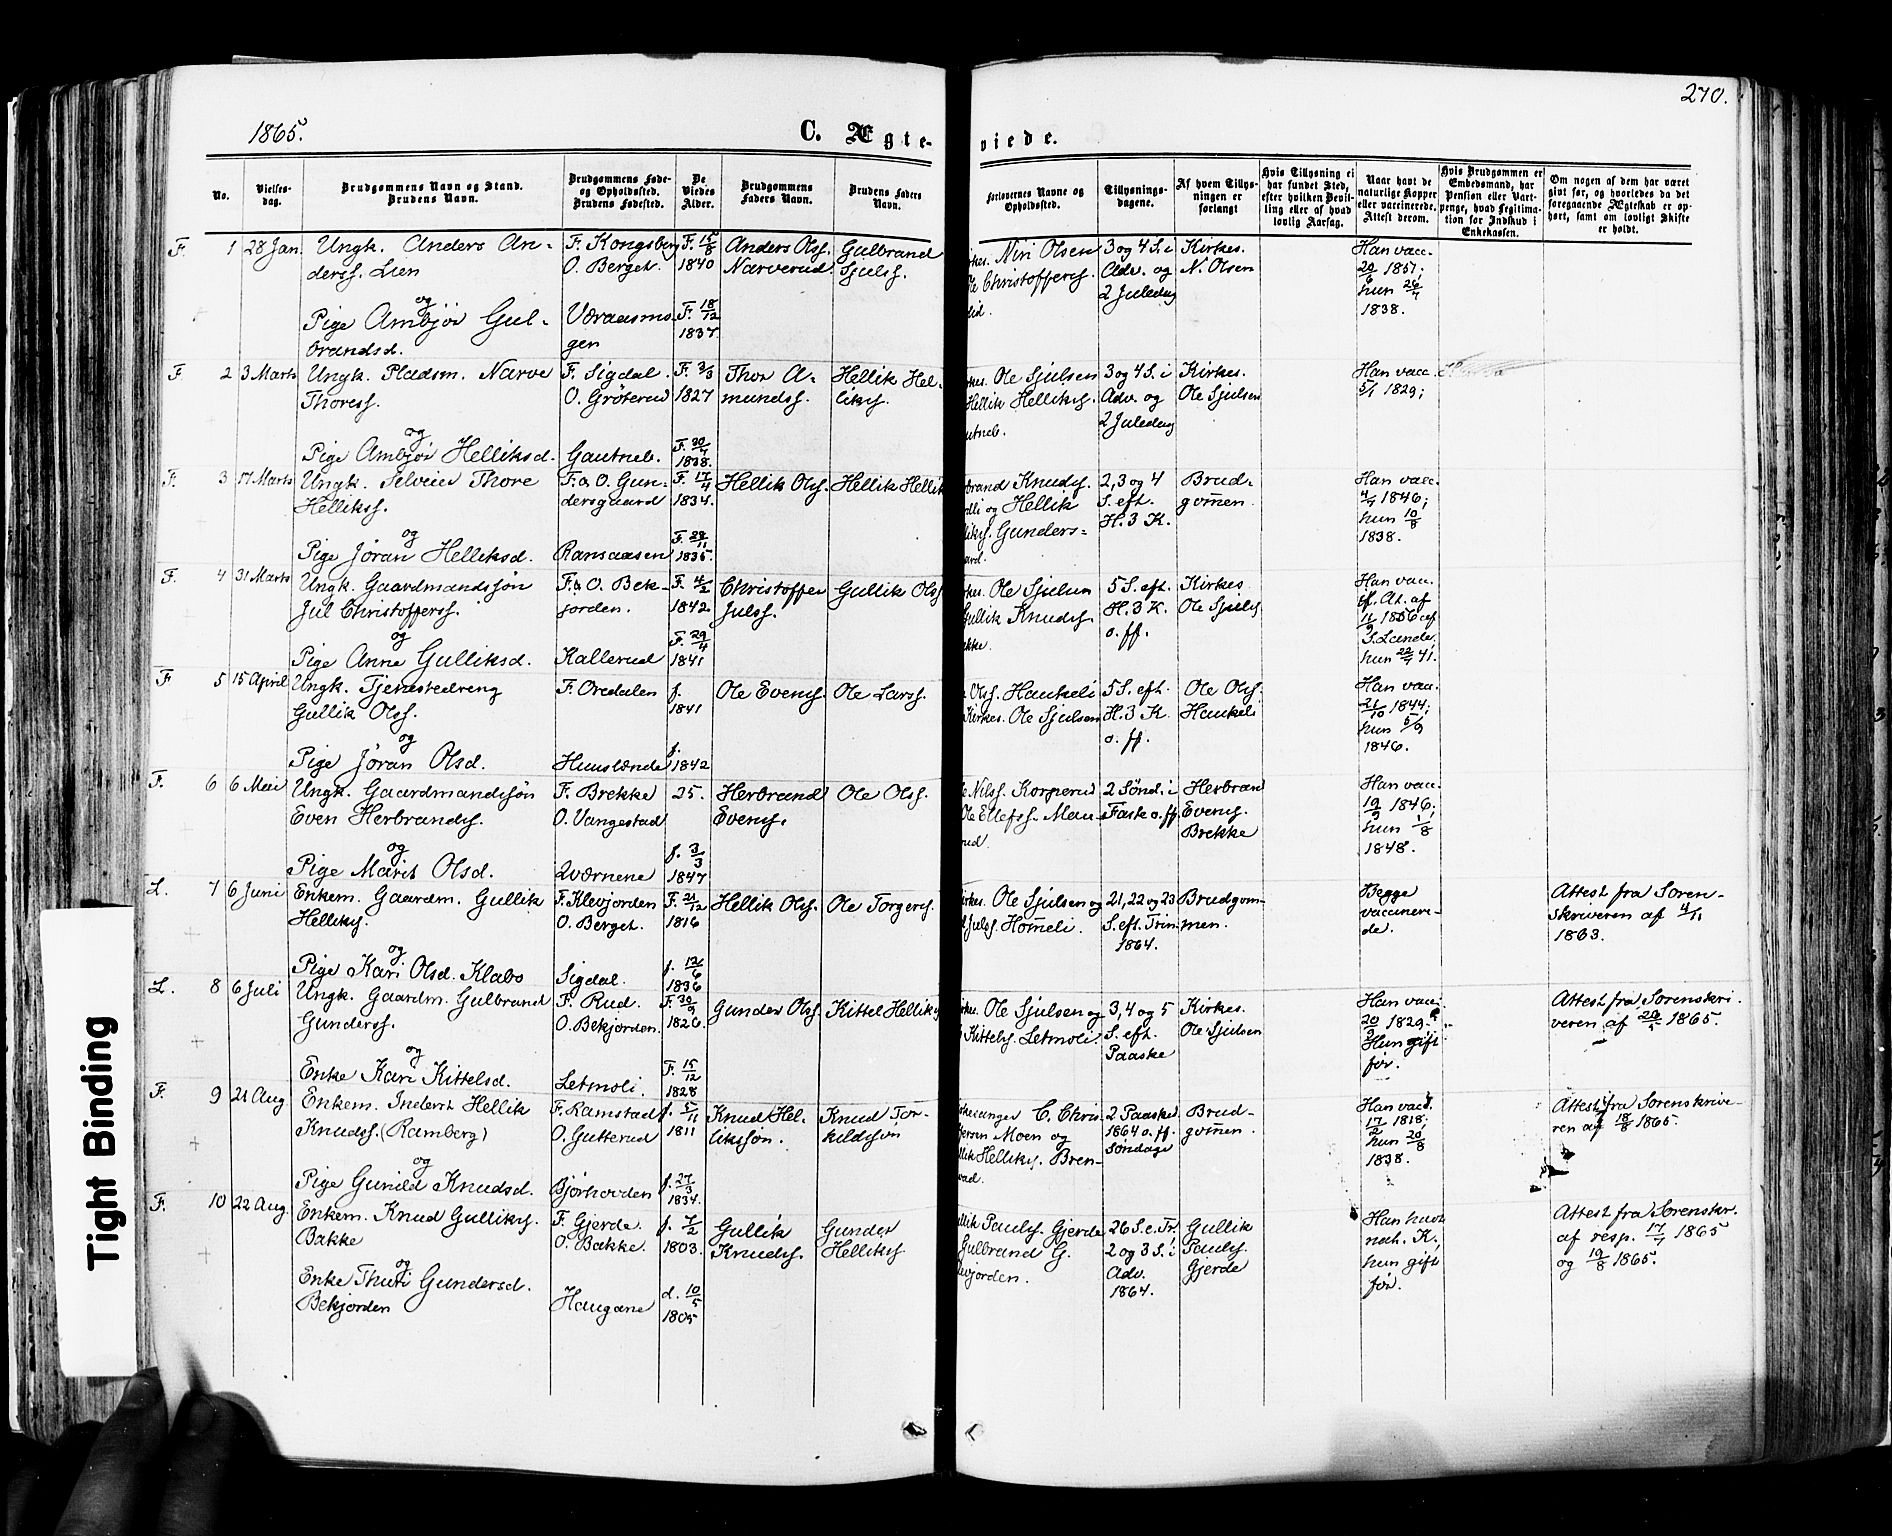 270.
1865.
C. Ægte-
viede.
No.
Vielses-
dag.
Brudgommens Navn og Stand.
Brudens Navn.
Brudgommens Føde-
og Opholdssted.
Brudens Fødested.
De
Viedes
Alder.
Brudgommens
Faders Navn.
Brudens Faders
Navn.
Forlovernes Navne og
Opholdssted.
Tillysnings-
dagene.
Af hvem Tillys-
ningen er
forlangt
Hvis Tillysning ei
har fundet Sted,
efter hvilken Bevil-
ling eller af hvad
lovlig Aarsag.
Naar havt de
naturlige Kopper
eller vaccinerede.
Attest derom.
Hvis Brudgommen er
Embedsmand, har
Pension eller Vart-
penge, hvad Legitima-
tion for Indskud i
Enkekassen.
Om nogen af dem har været
gift før, og hvorledes da det
foregaaende Ægteskab er op-
hørt, samt om lovligt Skifte
er holdt.
F. 1 28 Jan. Ungk. Anders An-
derss. Lien
og
Pige Ambjør Gul-
brandsd.
F. Kongsberg
O. Berget.
Væraasmo
gen
F. 15/8
1840
F. 18/12
1837.
Anders Olss.
Narverud
Gulbrand
Sjulss.
rkes. Niri Olsen
le Christofferss.
lid.
3 og 4 S. i
Adv. og
2 Juledag
Kirkes.
N. Olsen
Han vacc.
20/6 1851;
hun 26/7
1838.
F. 2 3 Marts Ungk. Pladsm. Narve
Thoress.
og
Pige Ambjør Helliksd.
F. Sigdal.
O. Grøterud
Gautneb.
F. 3/3
1827
F. 20/7
1838.
Thor A-
mundss.
Hellik Hel-
likss.
rkes. Ole Sjulsen
Hellik Hellikss.
utneb.
3 og 4 S. i
Adv. og
2 Juledag
Kirkes.
Ole Sjulsen
Han vacc.
5/7 1829;
F. 3 17 Marts Ungk. Selveier Thore
Hellikss.
og
Pige Jøran Helliksd.
F. o O. Gun-
dersgaard
Ramaasen
F. 17/4
1834.
F. 29/11
1835.
Hellik Olss.
Hellik Hellik
brand Knudss.
lli og Hellik
likss. Gunders-
ard.
2, 3 og 4
S. eft.
H. 3 K.
Brud-
gom̄en.
Han vacc.
4/9 1846;
hun 10/8
1838.
F. 4 31 Marts Ungk. Gaardmandssøn
Jul Christofferss.
og
Pige Anne Gulliksd.
F. o O. Bek-
jorden.
Kallerud
F. 4/2
1842
F. 29/4
1841
Christoffer
Julss.
Gullik Olss
rkes. Ole Sjulsen
Gullik Knudss.
kke.
5 S. eft.
H. 3 K.
o. ff.
Kirkes.
Ole Sjulss
Han vacc.
ef. At. af
11/9 1856 af
S. Lande.
hun 22/7 41.
F 5 15 April Ungk. Tjenestedreng
Gullik Olss.
og
Pige Jøran Olsd.
F. Oredalen
Huuslænde
f.
1841
f.
1842
Ole Evenss.
Ole Larss.
Olss. Haukeli
Kirkes. Ole Sjulsen
5 S. eft.
H. 3 K.
o. ff.
Ole Olss.
Haukeli
Han vacc.
21/10 1844;
hun 5/9
1846.
F. 6 6 Mai Ungk. Gaardmandssøn
Even Herbrandss.
og
Pige Marit Olsd.
F. Brekke
O. Vangestad
Qværnene
25.
f. 3/3
1847
Herbrand
Evenss.
Ole Olss.
Nilss. Korperud
Ole Ellefss. Mau-
rud.
2 Sønd. i
Faste o. ff.
Herbrand
Evenss.
Brekke
Han vacc.
19/9 1846;
hun 1/8
1848.
L. 7 6 Juni Enkem. Gaardm. Gullik
Hellikss.
og
Pige Kari Olsd. Klabo
F. Klevjorden
O. Berget.
Sigdal.
F. 21/12
1816
f. 12/6
1836
Hellik Olss.
Ole Torgerss.
irkes. Ole Sjulsen og
Julss. Hom̄eli.
21, 22 og 23
S. eft. Trin.
1864.
Brudgom-
men.
Begge
vaccinere-
de.
Attest fra Soren-
skriveren af 4/11
1863.
L. 8 6 Juli Ungk. Gaardm. Gulbrand
Gunderss.
og
Enke Kari Kittelsd.
F. Rud.
O. Bekjorden.
Letmoli.
F. 30/9
1826.
F. 15/12
1828
Gunder Olss.
Kittel Hellikss
rkes. Ole Sjulsen og
Kittelss. Letmoli.
3, 4 og 5
S. eft.
Paaske
Kirkes.
Ole Sjulsen
Han vacc.
20/9 1829.
Hun gift
før.
Attest fra Sorenskri.
veren af 20/5 1865.
F. 9 21 Aug Enkem. Inderst Hellik
Knudss. (Ramberg)
og
Pige Gunild Knudsd.
F. Ramstad
O. Gutterud
Bjørhovden
f. 5/11
1811
f. 27/3
1834.
Knud Hel-
likssøn.
Knud Tor-
kildssøn
rkesanger C. Chris-
fersen Moen og
llik Hellikss. Bren-
rad.
2 Paaske
1864 o. ff.
Søndage
Brud-
gom̄en.
Han vacc.
17/2 1818;
hun 20/8
1838.
Attest fra Sorenskrive-
ren af 18/8 1865.
F. 10 22 Aug. Enkem. Knud Gullikss.
Bakke
og
Enke Thuri Gundersd.
Bekjorden
F. Gjerde.
O. Bakke.
Haugane
f. 7/2
1803.
d. 10/5
1805
Gullik
Knudss.
Gunder
Hellikss
llik Paulss. Gjerde
Gulbrand G.
evjorden.
26 S. e. Tr.
2 og 3 S. i
Adv.
1864.
Gullik
Paulss.
Gjerde
Han havt
nat. K.
hun gift
før.
Attest fra Sorenskr.
af resp. 17/7 1865
og 19/8 1865.
Tight Binding